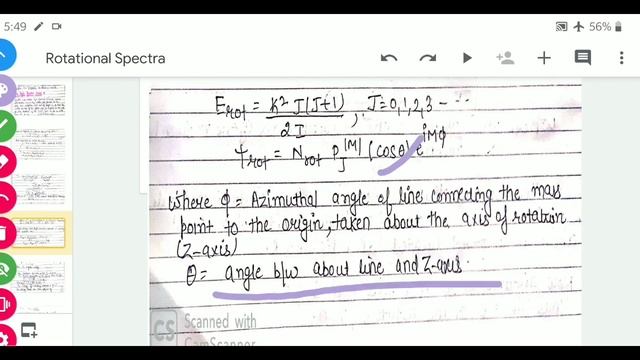 5:49
56%
Rotational Spectra
E_rot = ℏ² J(J+1) / 2I , J=0,1,2,3 - - -
Ψ_rot = N_rot P_J^|M| (cosθ) e^iMφ
Where φ = Azimuthal angle of line connecting the mass
point to the origin, taken about the axis of rotation
(Z-axis)
θ = angle b/w about line and Z-axis.
CS Scanned with
CamScanner